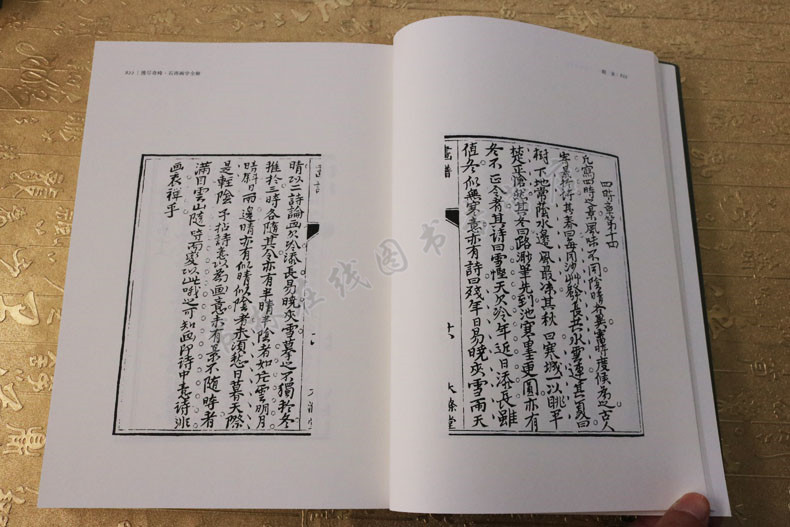 四時章第十四
凡寫四時之景風味不同陰晴各異審時度候為之古人
寄景於詩其春曰每同沙艸發長共水雲連其夏曰
樹下地常蔭水邊風最涼其秋曰寒城以眺平
楚正蒼然其冬曰路渺筆先到池寒墨更圓亦有
冬不正令者其詩曰雪慳天欠冷年近日添長雖
值冬似無寒意亦有詩曰殘年日易曉夾雪雨天
畫譜 十六 大滌堂
晴以二詩論画欠冷添長易曉夾雪摹之不獨於冬
推於三時各隨其令亦有半晴半陰者如片雲明月
暗斜日雨邊晴亦有似晴似陰者未須愁日暮天際
是輕陰予拈詩意以為画意未有景不隨時者
滿目雲山隨時而變以此哦之可知画即詩中意詩非
画裏禅乎
在线图书